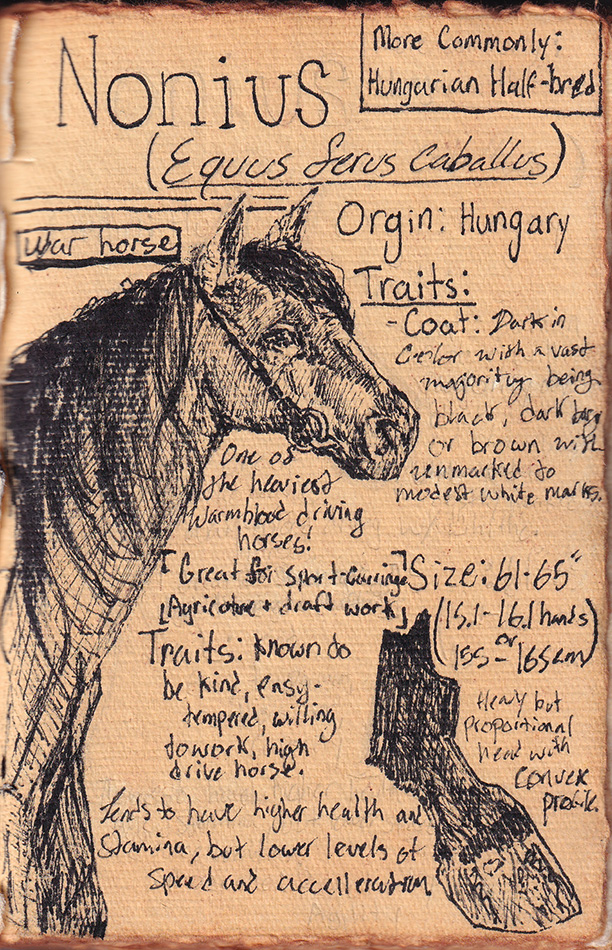 Nonius
More Commonly:
Hungarian Half-bred
(Equus ferus Caballus)
War horse
Orgin: Hungary
Traits:
- Coat: Dark in
Color with a vast
majority being
black, dark bay
or brown with
unmarked to
modest white marks.
One of
the heaviest
Warmblood driving
horses!
[Great for Sport-Carriage]
[Agriculture + draft work]
Size: 61-65"
(15.1-16.1 hands)
or
155-165cm
Traits: Known to
be kind, easy-
tempered, willing
to work, high
drive horse.
Heavy but
proportional
head with
convex
profile.
Tends to have higher health and
Stamina, but lower levels of
Speed and accelleration